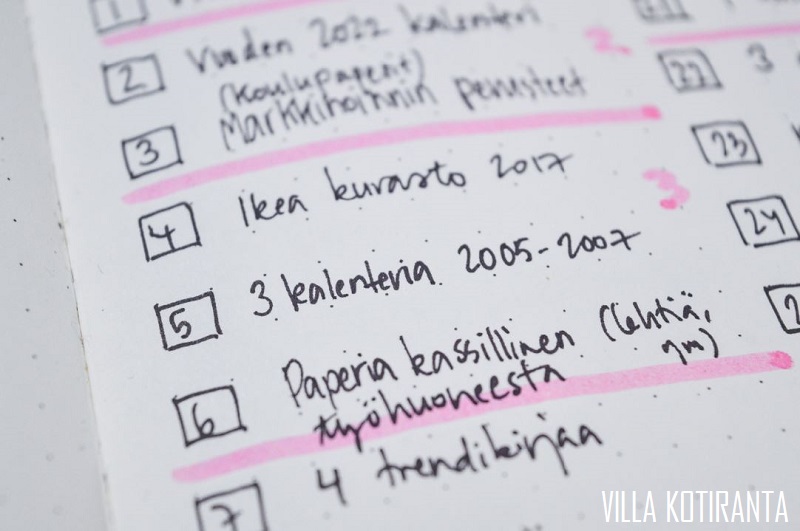 1
2 Vuoden 2022 kalenteri
(Koulupaperit)
3 Markkihoinnin perusteet
2
4 Ikea kuvasto 2017
3
5 3 kalenteria 2005-2007
6 Paperia kassillinen (lehtiä, ym)
työhuoneesta
7 4 trendikirjaa
21
22 3
23
24
2
VILLA KOTIRANTA